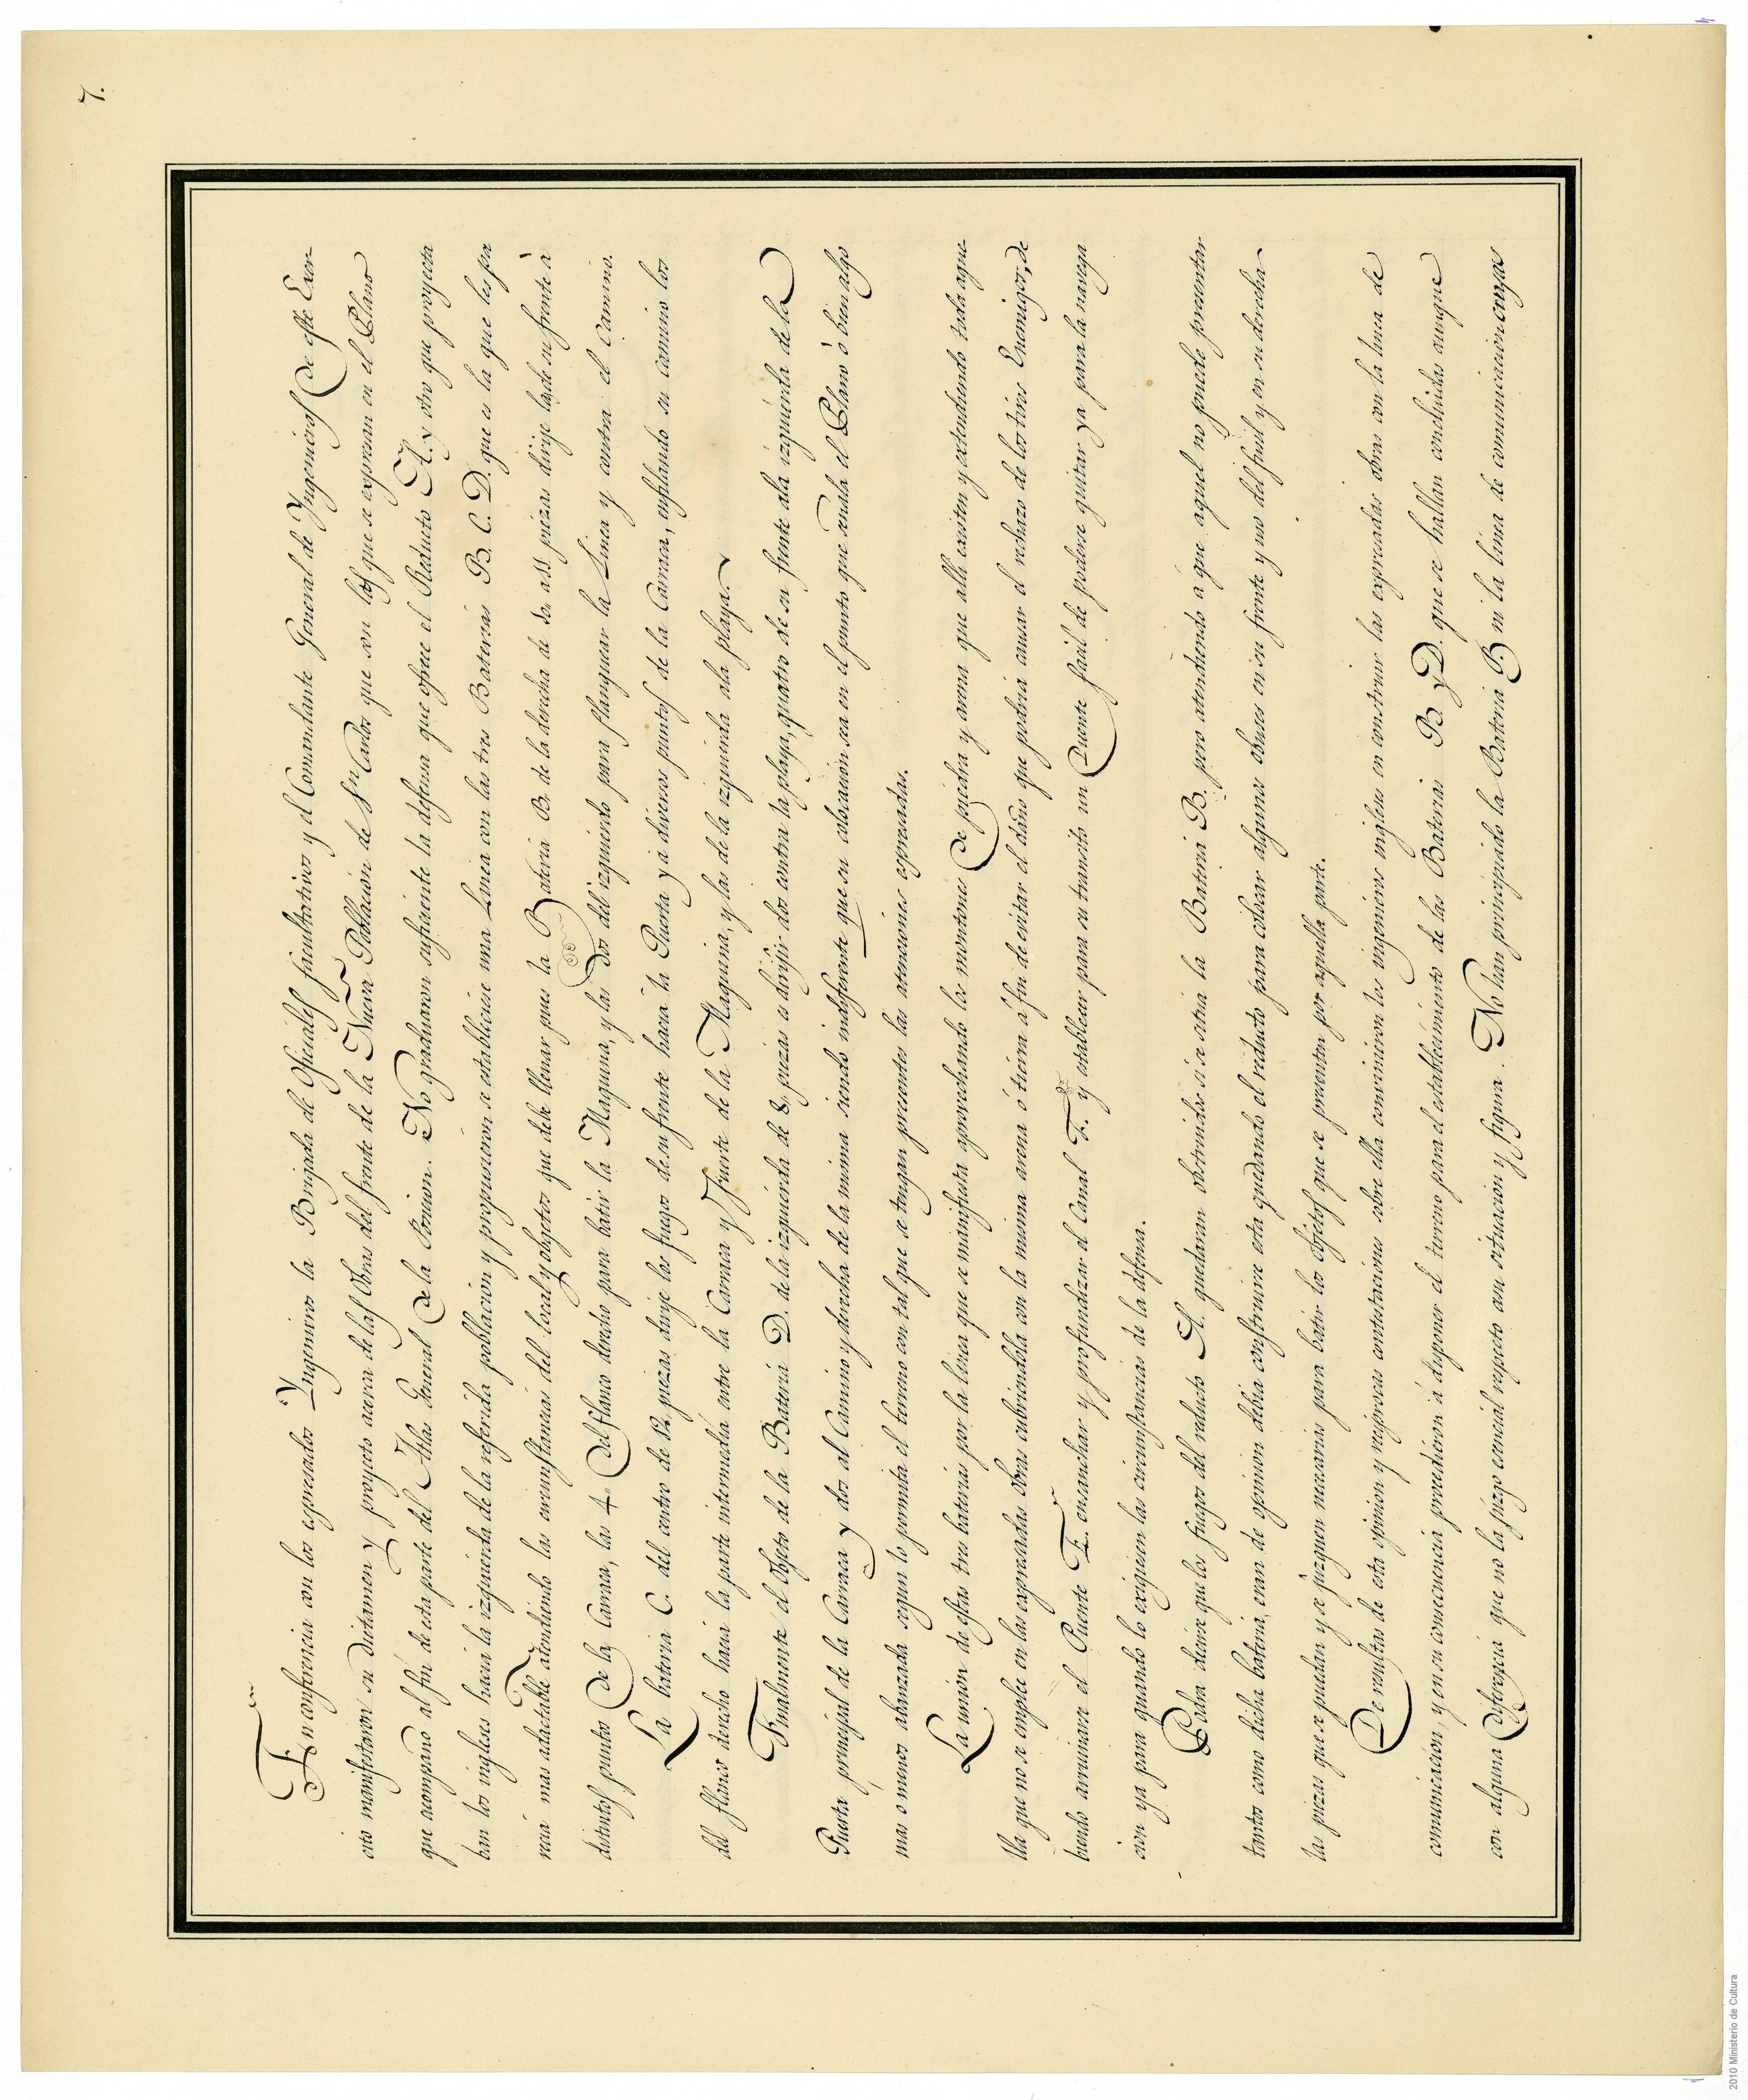 7.
En conferencia con los espresados Yngenieros la Brigada de Oficiales facultativos y el Comandante General de Yngenieros de este Exer-
cito manifestaron su dictamen y proyecto acerca de las Obras del frente de la Nueva Poblacion de Sn. Carlos que son las que se expresan en el Plano
que acompaño al fin de esta parte del Atlas General de la Posicion. No graduaron suficiente la defensa que ofrece el Reducto A. y otro que proyecta
ban los ingleses hacia la izquierda de la referida poblacion y propusieron se estableciese una Linea con las tres Baterias B. C. D. que es la que les pa
recia mas adactable atendiendo las circunstancias del local y objetos que debe llenar pues la Bateria B. de la derecha de piezas dirije de su frente à
distintos puntos de la Carraca, las 4 del flanco derecho para batir la Maquina, y las dos del izquierdo para flanquear la Linea y contra el Camino.
La bateria C. del centro de 12 piezas dirije los fuegos de su frente hacia la Puerta y à diversos puntos de la Carraca, enfilando su camino los
del flanco derecho hacia la parte intermedia entre la Carraca y Fuerte de la Maquina, y las de la izquierda ala playa.
Finalmente el Objeto de la Bateria D. de la izquierda de 8 piezas es dirijir dos contra la playa, quatro de su frente ala izquierda de la
Puerta principal de la Carraca y dos al Camino y derecha de la misma siendo indiferente que su colocacion sea en el punto que señala el Plano ò bien algo
mas o menos abanzada segun lo permita el terreno con tal que se tengan presentes las atenciones expresadas.
La union de estas tres baterias por la linea que se manifiesta aprovechando los montones de piedra y arena que alli existen y extendiendo toda aque
lla que no se emplee en las expresadas Obras cubriendola con la misma arena ò tierra à fin de evitar el daño que podria causar el rechazo de los tiros Enemigos, de
biendo arruinarse el Puente E. ensanchar y profundizar el Canal F. y establecer para su transito un Puente facil de poderse quitar ya para la navega
cion ya para quando lo exigiesen las circunstancias de la defensa.
Podra decirse que los fuegos del reducto A. quedaran obstruidos si se situa la Bateria B. pero atendiendo à que aquel no puede presentar
tantos como dicha bateria, eran de opinion debia construirse esta quedando el reducto para colocar algunos obuses en su frente y uno del fusil y en su derecha
las piezas que se puedan y se juzguen necesarias para batir los objetos que se presenten por aquella parte.
De resultas de esta opinion y reciprocas contestaciones sobre ella convinieron los ingenieros ingleses en construir las expresadas obras con la linea de
comunicacion, y en su consecuencia procedieron à disponer el terreno para el establecimiento de las Baterias B. y D. que se hallan concluidas aunque
con alguna diferencia que no la juzgo esencial respecto asu situacion y figura. No han principiado la Bateria B ni la linea de comunicacion cuyas
2010 Ministerio de Cultura